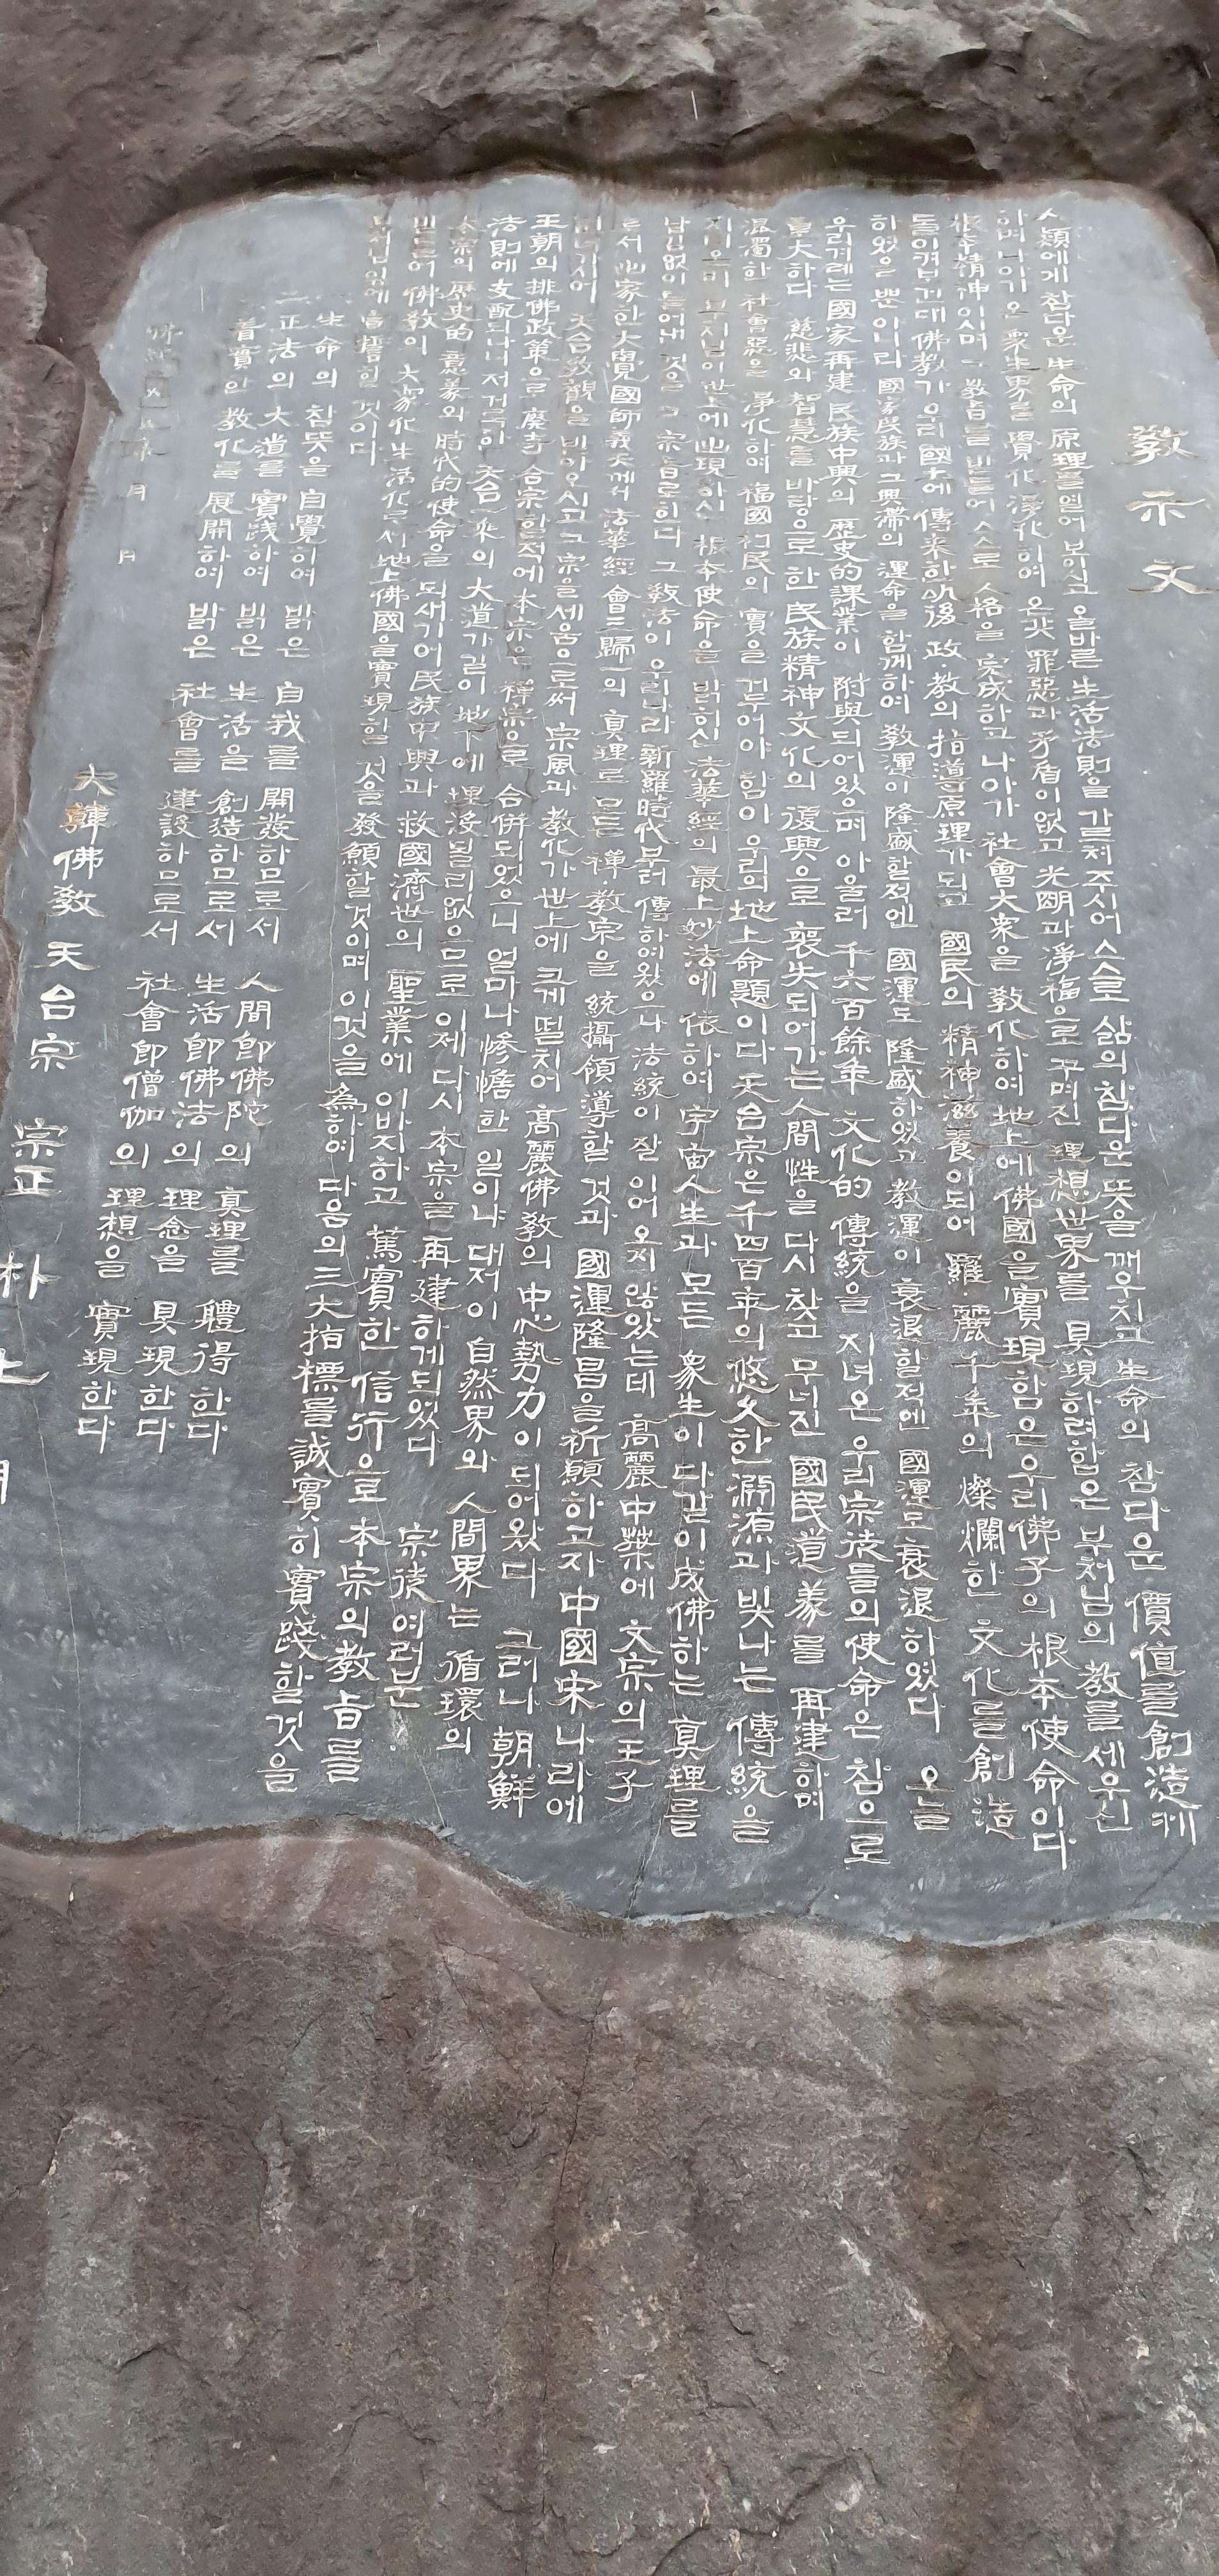 敎示文
人類에게 참다운 生命의 原理를 열어 보이시고 올바른 生活法則을 가르쳐 주시어 스스로 삶의 참다운 뜻을 깨우치고 生命의 참다운 價値를 創造케
하며 나아가 온 衆生界를 覺化 淨化하여 온갖 罪惡과 矛盾이 없고 光明과 淨福으로 꾸며진 理想世界를 具現하려함은 부처님의 敎를 세우신
根本精神이시며 그 敎旨를 받들어 스스로 人格을 完成하고 나아가 社會大衆을 敎化하여 地上에 佛國을 實現함은 우리 佛子의 根本使命이다
돌이켜보건대 佛敎가 우리 國土에 傳來한 以後 政·敎의 指導原理가 되고 國民의 精神滋養이 되어 羅·麗 千年의 燦爛한 文化를 創造
하였을 뿐 아니라 國家民族과 그 興滯의 運命을 함께하여 敎運이 隆盛할적엔 國運도 隆盛하였고 敎運이 衰退할적엔 國運도 衰退하였다 오늘
우리겨레는 國家再建 民族中興의 歷史的課業이 附與되어있으며 아울러 千六百餘年 文化的 傳統을 지녀온 우리宗徒들의 使命은 참으로
重大하다 慈悲와 智慧를 바탕으로 한 民族精神文化의 復興으로 喪失되어가는 人間性을 다시 찾고 무너진 國民道義를 再建하며
混濁한 社會惡을 淨化하여 福國 利民의 實을 거두어야 함이 우리의 地上命題이다 天台宗은 千四百年의 悠久한 淵源과 빛나는 傳統을
지니 부처님이 世上에 出現하신 根本使命을 밝히신 法華經의 最上妙法에 依하여 宇宙人生과 모든 衆生이 다같이 成佛하는 眞理를
남김없이 들어내 것을 그 宗旨로 한다 그 敎法이 우리나라 新羅時代부터 傳하여왔으나 法統이 잘 이어 오지 않았는데 高麗中葉에 文宗의 王子
로서 出家한 大覺國師義天께서 法華經 會三歸一의 眞理로 모든 禪·敎宗을 統攝領導할 것과 國運隆昌을 祈願하고자 中國宋나라에
天台敎觀을 받아오시고 그 宗을 세움으로써 宗風과 敎化가 世上에 크게 떨치어 高麗佛敎의 中心勢力이 되어왔다 그러나 朝鮮
王朝의 排佛政策으로 廢寺 合宗할적에 本宗은 禪宗으로 合倂되었으니 얼마나 慘憺한 일이냐 대저 이 自然界와 人間界는 循環의
法則에 支配되나니 저 거룩한 天台 의 大道가 길이 地下에 埋沒될리 없으므로 이제 다시 本宗을 再建하게 되었다 宗徒여러분
本宗의 歷史的 意義와 時代的使命을 되새기어 民族中興과 救國濟世의 聖業에 이바지하고 篤實한 信行으로 本宗의 敎旨를
받들어 佛敎의 大衆化 生活化로서 地上佛國을 實現할 것을 發願할것이며 이것을 爲하여 다음의 三大指標를 誠實히 實踐할것을
부처님 앞에 盟誓할 것이다
生命의 참뜻을 自覺하여 밝은 自我를 開發하므로서 人間卽佛陀의 眞理를 體得한다
二 正法의 大道를 實踐하여 밝은 生活을 創造하므로서 生活卽佛法의 理念을 具現한다
着實한 敎化를 展開하여 밝은 社會를 建設하므로서 社會卽僧伽의 理想을 實現한다
佛紀 年 月 日
大韓佛敎 天台宗 宗正 朴 上 月